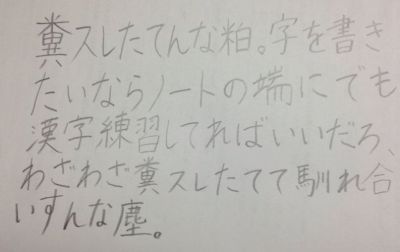 糞スレたてんな粕。字を書き
たいならノートの端にでも
漢字練習してればいいだろ、
わざわざ糞スレたてて馴れ合
いすんな塵。